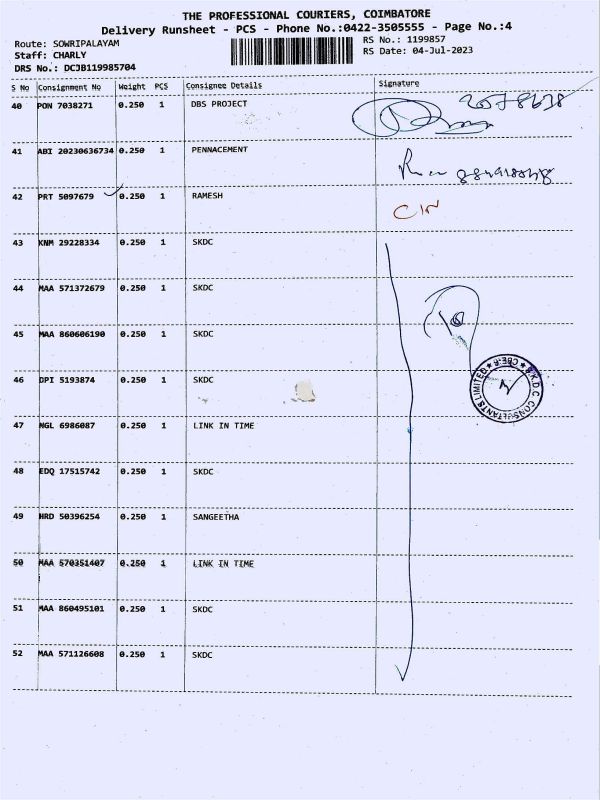 THE PROFESSIONAL COURIERS, COIMBATORE
Delivery Runsheet - PCS - Phone No.:0422-3505555 - Page No.:4
Route: SOWRIPALAYAM
RS No.: 1199857
Staff: CHARLY
RS Date: 04-Jul-2023
DRS No.: DCJB119985704
S No Consignment No Weight PCS Consignee Details Signature
40 PON 7038271 0.250 1 DBS PROJECT
41 ABI 20230636734 0.250 1 PENNACEMENT
42 PRT 5097679 0.250 1 RAMESH
43 KNM 29228334 0.250 1 SKDC
44 MAA 571372679 0.250 1 SKDC
45 MAA 860606190 0.250 1 SKDC
46 DPI 5193874 0.250 1 SKDC
S.K.D.C CONSULTANTS LIMITED ★ CBE-6 ★
47 NGL 6986087 0.250 1 LINK IN TIME
48 EDQ 17515742 0.250 1 SKDC
49 HRD 50396254 0.250 1 SANGEETHA
50 MAA 570351407 0.250 1 LINK IN TIME
51 MAA 860495101 0.250 1 SKDC
52 MAA 571126608 0.250 1 SKDC